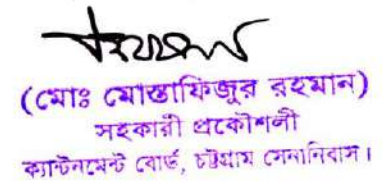 (মোঃ মোস্তাফিজুর রহমান)
সহকারী প্রকৌশলী
ক্যান্টনমেন্ট বোর্ড, চট্টগ্রাম সেনানিবাস।